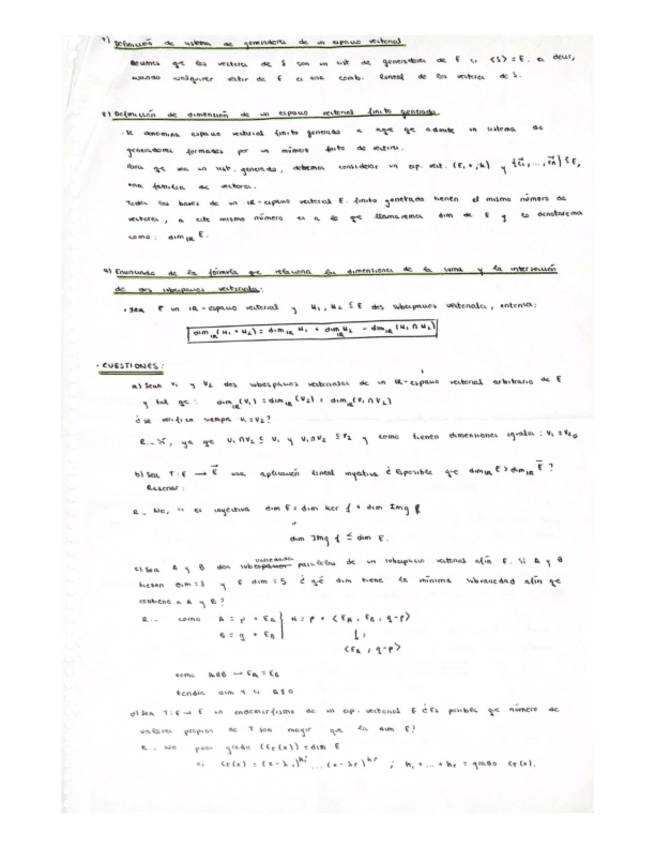 7) Definición de sistema de generadores de un espacio vectorial
Decimos que los vectores de S son un sist de generadores de E si <S> = E. es decir,
cuando cualquier vector de E es una comb. lineal de los vectores de S.
8) Definición de dimensión de un espacio vectorial finito generado
Se denomina espacio vectorial finito generado a aquel que admite un sistema de
generadores formados por un número finito de vectores.
Para que sea un sist. generado, debemos considerar un esp. vect. (E,+,·k) y {e₁,...,eₙ} ⊆ E,
una familia de vectores.
Todas las bases de un IR-espacio vectorial E. finito generado tienen el mismo número de
vectores, a este mismo número es a lo que llamaremos dim de E y lo denotaremos
como: dim_IR E.
9) Enunciado de la fórmula que relaciona las dimensiones de la suma y la intersección
de dos subespacios vectoriales:
· Sea E un IR-espacio vectorial y H₁, H₂ ⊆ E dos subespacios vectoriales, entonces:
dim_IR (H₁ + H₂) = dim_IR H₁ + dim_IR H₂ - dim_IR (H₁ ∩ H₂)
· CUESTIONES:
a) Sean V₁ y V₂ dos subespacios vectoriales de un IR-espacio vectorial arbitrario de E
y tal que: dim_IR (V₁) = dim_IR (V₂) = dim_IR (V₁ ∩ V₂)
¿se verifica siempre V₁ = V₂?
R.- Sí, ya que V₁ ∩ V₂ ⊆ V₁ y V₁ ∩ V₂ ⊆ V₂ y como tienen dimensiones iguales: V₁ = V₂
b) Sea T: E → E una aplicación lineal inyectiva ¿Es posible que dim_IR E > dim_IR E?
Razonar:
R.- No, si es inyectiva dim E = dim ker f + dim Img f
dim Img f ≤ dim E.
c) Sea A y B dos variedades paralelas de un subespacio vectorial afín E. Si A y B
tienen dim = 3 y E dim = 5 ¿qué dim tiene la mínima subvariedad afín que
contiene a A y B?
R.- como A = p + E_A } H = p + <E_A, E_B, q-p>
B = q + E_B
<E_A, q-p>
como A∥B → E_A = E_B
tendrá dim 4 si
d) Sea T: E → E un endomorfismo de un esp. vectorial E ¿Es posible que número de
valores propios de T son mayor que la dim E?
R.- No pues grado (C_T(x)) = dim E
si C_T(x) = (x-λ₁)^h₁ ... (x-λr)^hr ; h₁ + ... + hr = grado C_T(x).